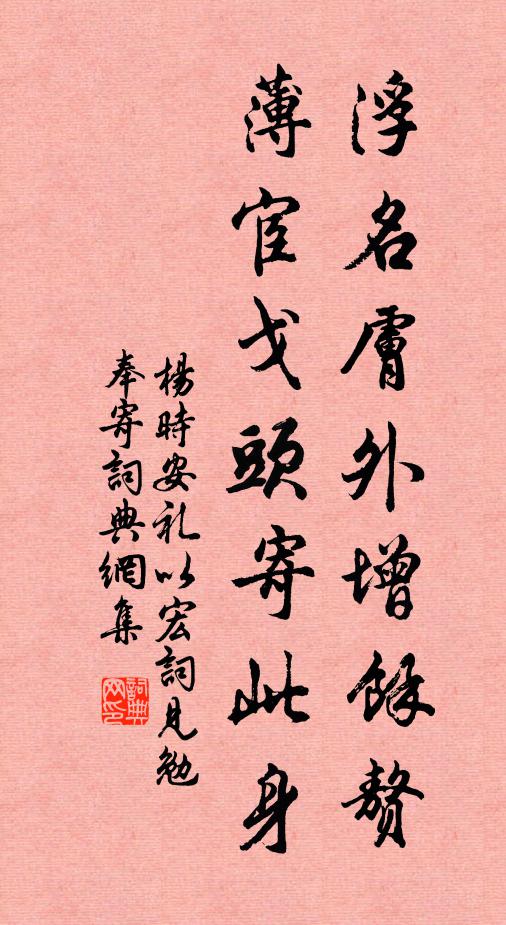 浮名膚外增餘贅
薄宦戈頭寄此身
楊時安礼以宏詞見勉
奉寄詞典網集
詞典网印